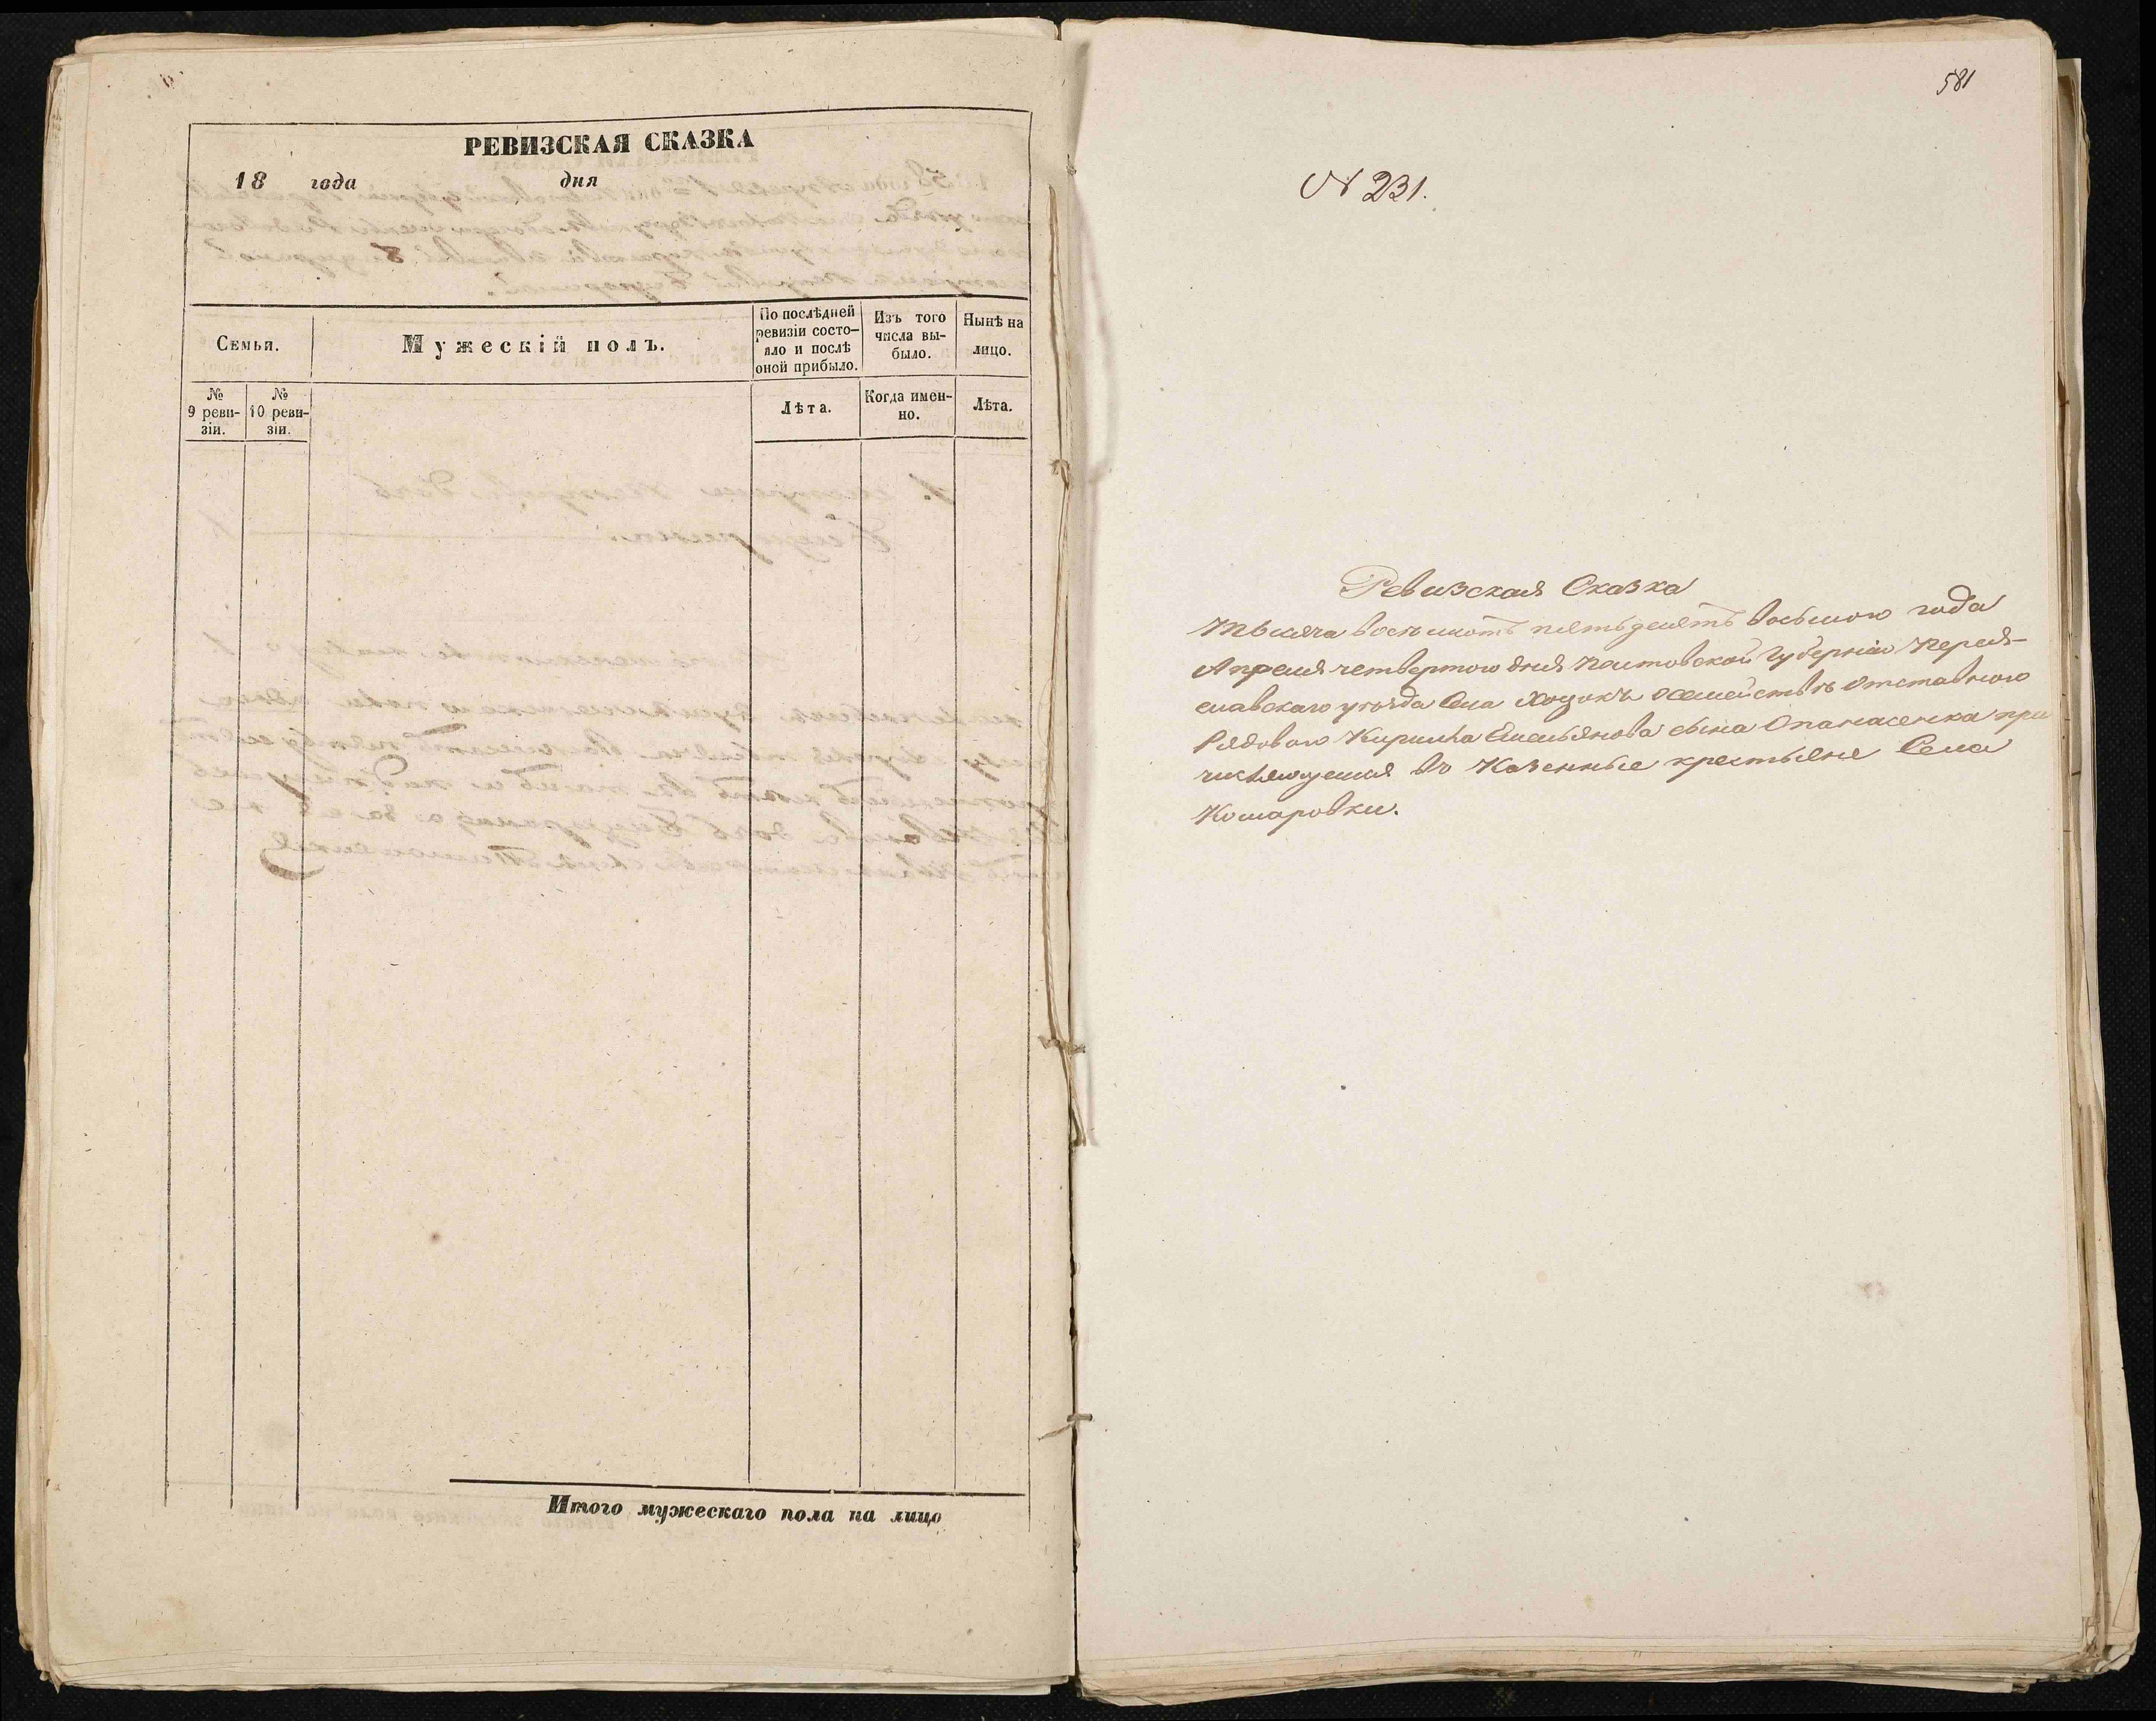 РЕВИЗСКАЯ СКАЗКА
18 года дня
Семьи.
Мужескій полъ.
По послѣдней ревизіи состо-
яло и послѣ
оной прибыло.
Изъ того
числа вы-
было.
Нынѣ на
лицо.
№
9 реви-
зіи.
№
10 реви-
зіи.
Лѣта.
Когда имен-
но.
Лѣта.
Итого мужескаго пола на лицо
581
№ 231.
Ревизская Сказка
тысяча восемьсотъ пятьдесятъ восьмого года
Апреля четвертого дня Полтовской Губерніи Перея-
славскаго уѣзда Села Хоцокъ о семействѣ отставного
Рядового Кирилла Емельянова сына Опанасенка при
числяющемся въ Казенные крестьяне Села
Комаровки.